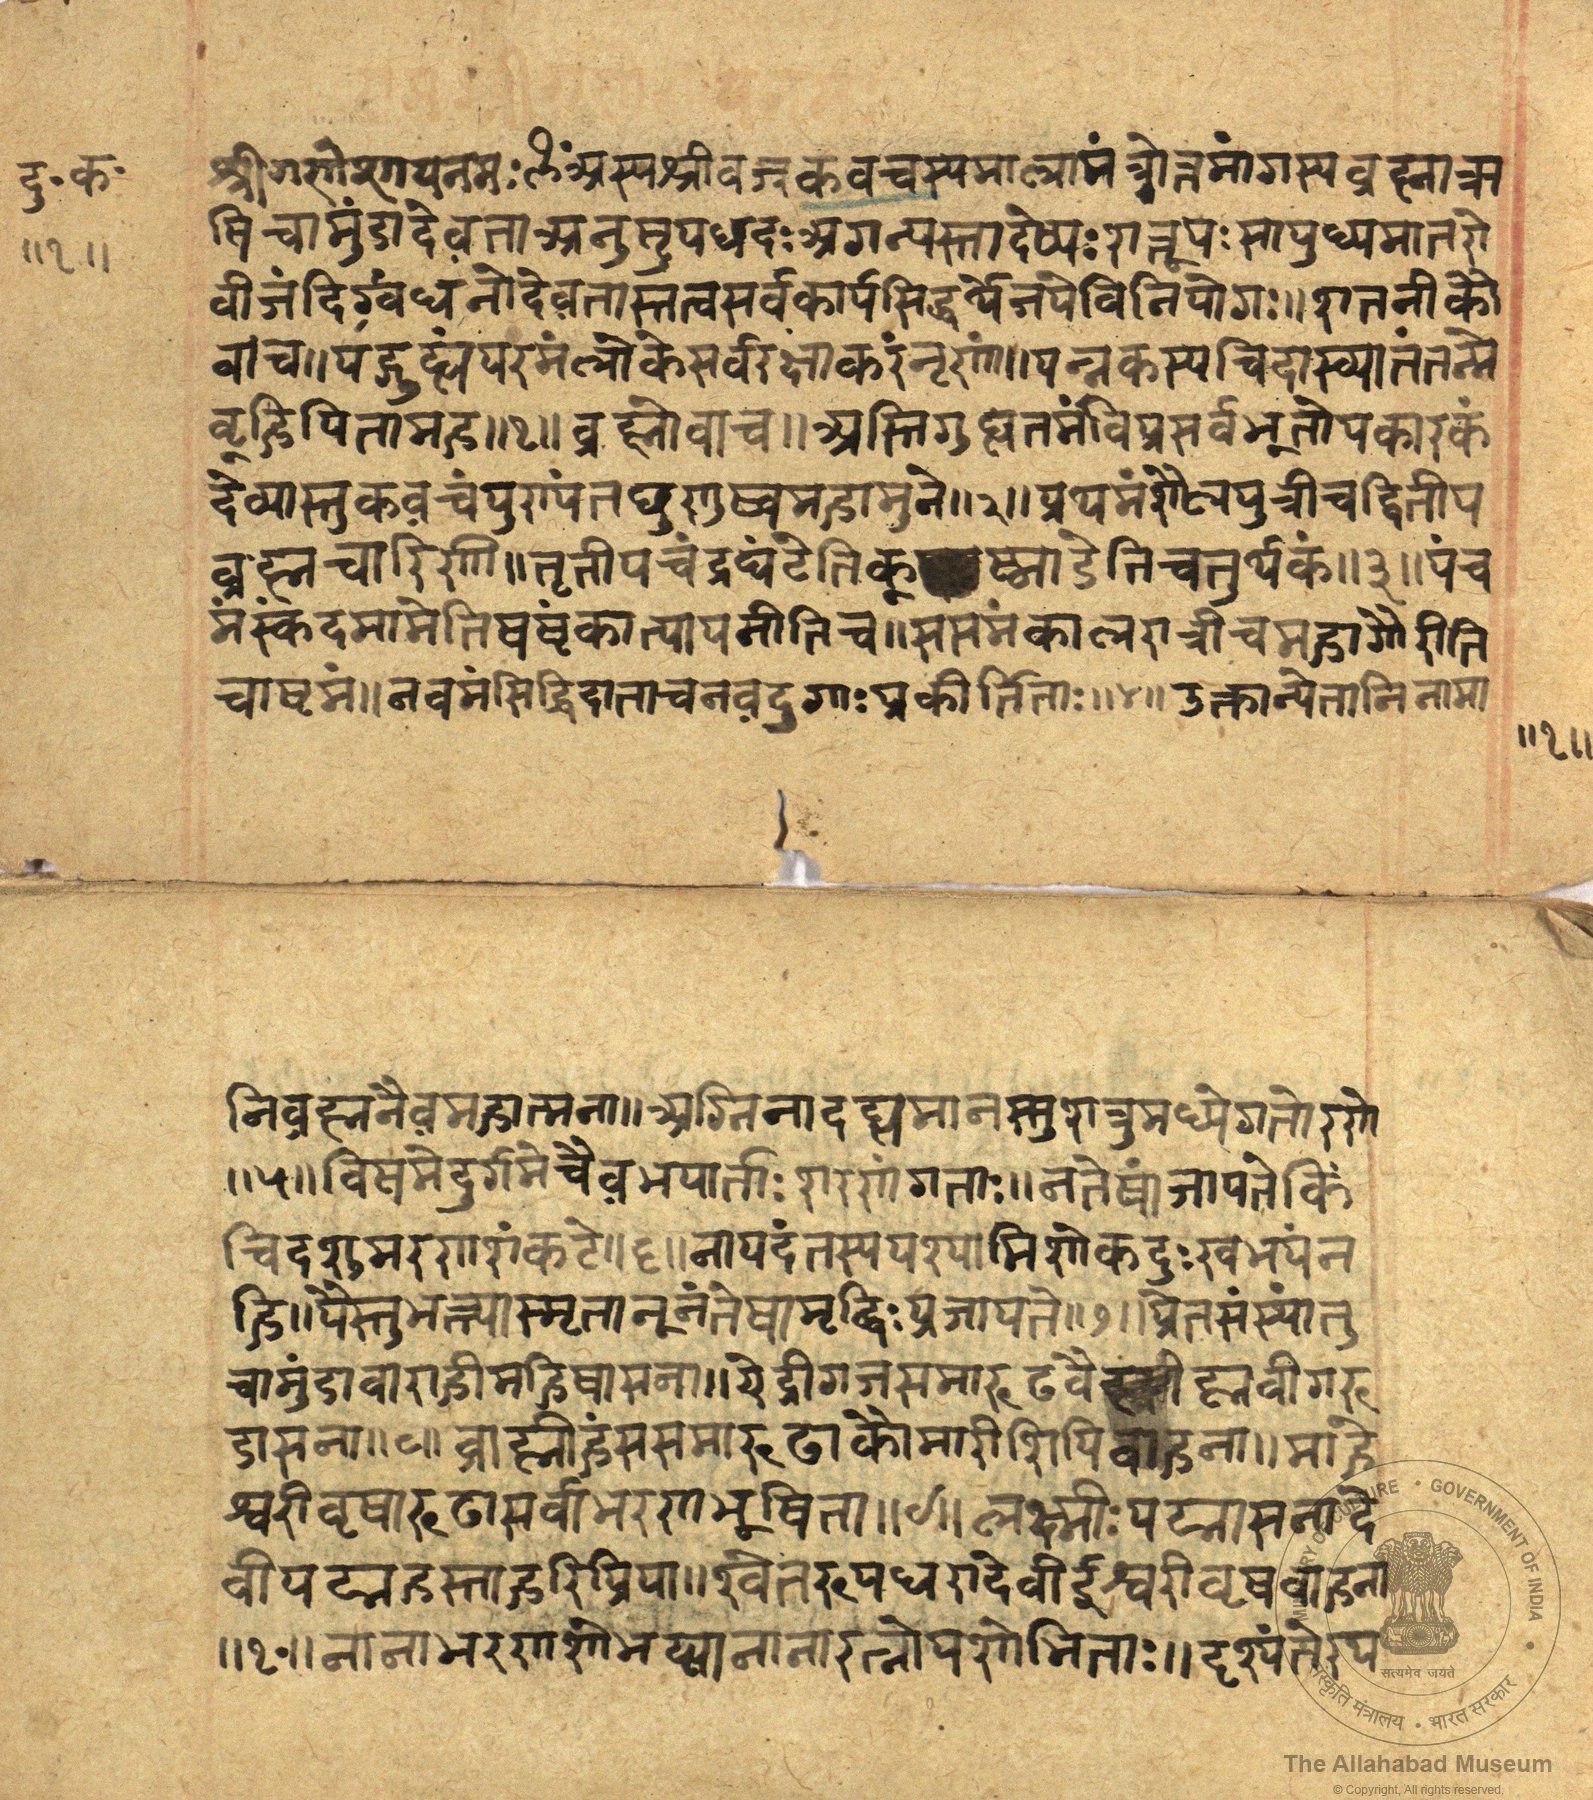 दु॰ क॰
॥१॥
श्रीगणेशायनमः ॐ अस्यश्रीवज्रकवचस्यमालामंत्रोत्तमांगस्यब्रह्माऋ
षिचामुंडादेवताअनुस्तुपछदःअगन्यस्तादेव्यःशत्रूपःसापुध्यमातरो
वीजंदिग्वंधंनोदेवतास्तत्वसर्वकार्यसिद्ध्यर्थेजपेविनियोगः॥शतनीकौ
वाच॥यंद्गुह्यंपरमंलोकेसर्वरक्षाकरंनृणां॥यन्नकस्यचिदाख्यातंतन्मे
वृहिपितामह॥१॥ब्रह्मोवाच॥अस्तिगुह्यतमंविप्रसर्वभूतोपकारकं
देव्यास्तुकवचंपुण्यंतछुणुष्वमहामुने॥२॥प्रथमंशैलपुत्रीचद्वितीय
ब्रह्मचारिणी॥तृतीयचंद्रघंटेतिकूष्मांडेतिचतुर्थकं॥३॥पंच
मंस्कंदमामेतिषष्टंकात्यायनीतिच॥सप्तमंकालरात्रीचमहागौरीति
चाष्टमं॥नवमंसिद्धिदाताचनवदुगाःप्रकीर्तिताः॥४॥उक्तान्येतानिनामा
॥१॥
निब्रह्मनैवमहात्मना॥अग्निनादह्यमानस्तुशत्रुमध्येगतोरणे
॥५॥विषमेदुर्गमेचैवभयार्ताःशरणंगताः॥नतेषांजायतेकिं
चिदशुमरणशंकटे॥६॥नापदंतस्यपश्यामिशोकदुःखभयंन
हि॥यैस्तुभक्त्यास्मृतानूनंतेषामृद्धिःप्रजायते॥७॥प्रेतसंस्यांतु
चामुंडावाराहीमहिषासना॥येद्रीगजसमारूढवैह्मवीगरू
डासना॥८॥ब्राह्मीहंससमारूढाकौमारीशिपिवाहना॥माहे
श्वरीवृषारूढासर्वाभरणभूषिता॥९॥लक्ष्मीःपद्मासनादे
वीपद्महस्ताहरिप्रिया॥श्वेतरूपधरादेवीईश्वरीवृषवाहना
॥१०॥नानाभरणशोभढ्यानानारत्नोपशोभिताः॥दृश्यंतेरथ
MINISTRY OF CULTURE • GOVERNMENT OF INDIA
सत्यमेव जयते
संस्कृति मंत्रालय • भारत सरकार
The Allahabad Museum
© Copyright, All rights reserved.